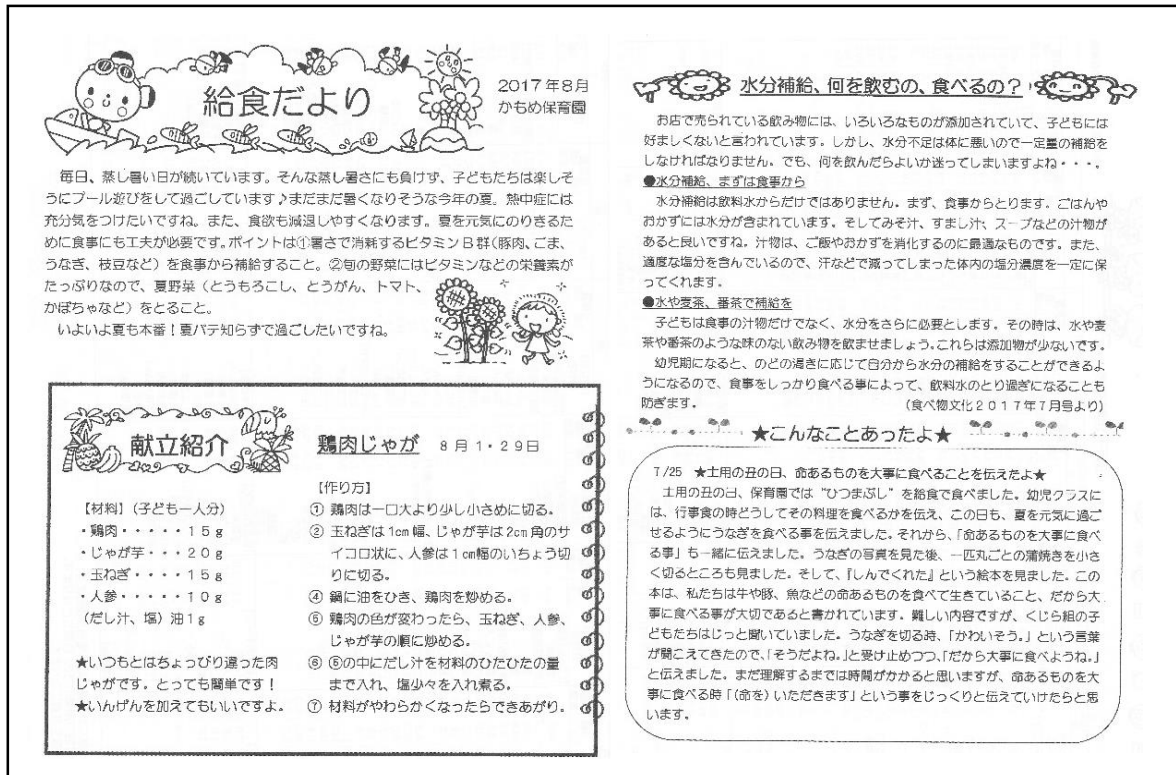 給食だより
2017年8月
かもめ保育園
毎日、蒸し暑い日が続いています。そんな蒸し暑さにも負けず、子どもたちは楽しそ
うにプール遊びをして過ごしています♪まだまだ暑くなりそうな今年の夏。熱中症には
充分気をつけたいですね。また、食欲も減退しやすくなります。夏を元気にのりきるた
めに食事にも工夫が必要です。ポイントは①暑さで消耗するビタミンB群(豚肉、ごま、
うなぎ、枝豆など)を食事から補給すること。②旬の野菜にはビタミンなどの栄養素が
たっぷりなので、夏野菜(とうもろこし、とうがん、トマト、
かぼちゃなど)をとること。
いよいよ夏も本番!夏バテ知らずで過ごしたいですね。
献立紹介
鶏肉じゃが 8月1・29日
【材料】(子ども一人分)
・鶏肉・・・・・15g
・じゃが芋・・・20g
・玉ねぎ・・・・15g
・人参・・・・・10g
(だし汁、塩)油1g
★いつもとはちょっぴり違った肉
じゃがです。とっても簡単です!
★いんげんを加えてもいいですよ。
【作り方】
① 鶏肉は一口大より少し小さめに切る。
② 玉ねぎは1cm幅、じゃが芋は2cm角のサ
イコロ状に、人参は1cm幅のいちょう切
りに切る。
④ 鍋に油をひき、鶏肉を炒める。
⑤ 鶏肉の色が変わったら、玉ねぎ、人参、
じゃが芋の順に炒める。
⑥ ⑤の中にだし汁を材料のひたひたの量
まで入れ、塩少々を入れ煮る。
⑦ 材料がやわらかくなったらできあがり。
水分補給、何を飲むの、食べるの?
お店で売られている飲み物には、いろいろなものが添加されていて、子どもには
好ましくないと言われています。しかし、水分不足は体に悪いので一定量の補給を
しなければなりません。でも、何を飲んだらよいか迷ってしまいますよね・・・。
●水分補給、まずは食事から
水分補給は飲料水からだけではありません。まず、食事からとります。ごはんや
おかずには水分が含まれています。そしてみそ汁、すまし汁、スープなどの汁物が
あると良いですね。汁物は、ご飯やおかずを消化するのに最適なものです。また、
適度な塩分を含んでいるので、汗などで減ってしまった体内の塩分濃度を一定に保
ってくれます。
●水や麦茶、番茶で補給を
子どもは食事の汁物だけでなく、水分をさらに必要とします。その時は、水や麦
茶や番茶のような味のない飲み物を飲ませましょう。これらは添加物が少ないです。
幼児期になると、のどの渇きに応じて自分から水分の補給をすることができるよ
うになるので、食事をしっかり食べる事によって、飲料水のとり過ぎになることも
防ぎます。 (食べ物文化2017年7月号より)
★こんなことあったよ★
7/25 ★土用の丑の日、命あるものを大事に食べることを伝えたよ★
土用の丑の日、保育園では“ひつまぶし”を給食で食べました。幼児クラスに
は、行事食の時どうしてその料理を食べるかを伝え、この日も、夏を元気に過ご
せるようにうなぎを食べる事を伝えました。それから、「命あるものを大事に食べ
る事」も一緒に伝えました。うなぎの写真を見た後、一匹丸ごとの蒲焼きを小さ
く切るところも見ました。そして、『しんでくれた』という絵本を見ました。この
本は、私たちは牛や豚、魚などの命あるものを食べて生きていること、だから大
事に食べる事が大切であると書かれています。難しい内容ですが、くじら組の子
どもたちはじっと聞いていました。うなぎを切る時、「かわいそう。」という言葉
が聞こえてきたので、「そうだよね。」と受け止めつつ、「だから大事に食べようね。」
と伝えました。まだ理解するまでは時間がかかると思いますが、命あるものを大
事に食べる時「(命を)いただきます」という事をじっくりと伝えていけたらと思
います。